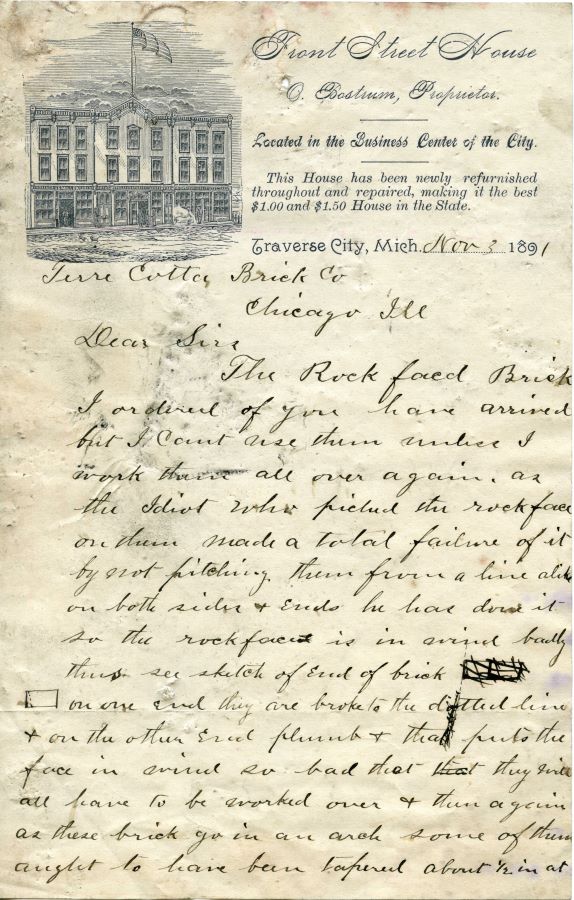 Front Street House
O. Bostrum, Proprietor.
Located in the Business Center of the City.
This House has been newly refurnished
throughout and repaired, making it the best
$1.00 and $1.50 House in the State.
Traverse City, Mich. Nov 3 1891
Terre Cotta Brick Co
Chicago Ill
Dear Sirs
The Rock faced Brick
I ordered of you have arrived
but I Cant use them unless I
work them all over again. as
the Idiot who piched the rockface
on them made a total failure of it
by not pitching them from a line alike
on both sides & Ends he has done it
so the rockface is in wind badly
thus see sketch of End of brick
on one End they are broke to the dotted line
& on the other End plumb & that puts the
face in wind so bad that they will
all have to be worked over & then again
as these brick go in an arch some of them
aught to have been tapered about ½ in at